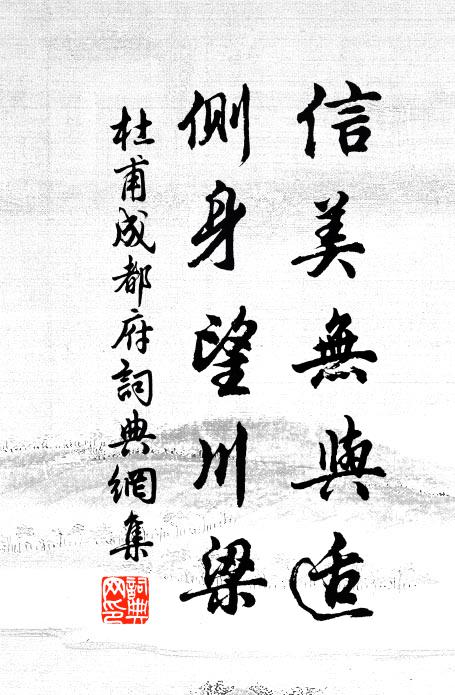 信美無與適
側身望川梁
杜甫成都府詞典網集
詞典網印